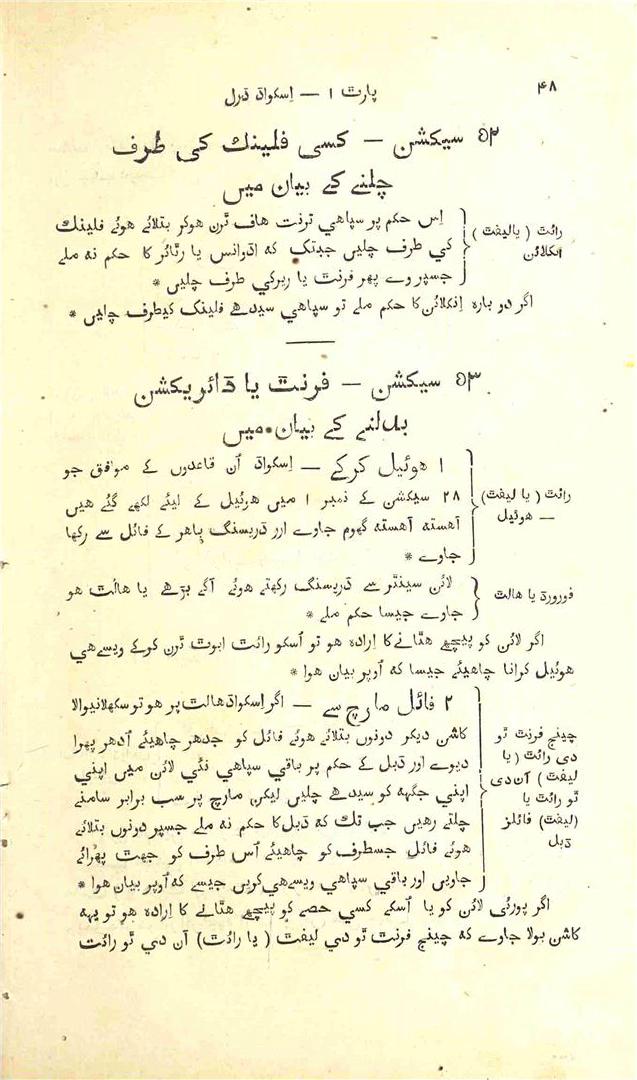 ۴۸
پارٹ ۱ — اِسکواڈ ڈرل
۵۲ سیکشن — کسی فلینک کی طرف
چلنے کے بیان میں
رائٹ ( یا لیفٹ )
انکلائن
اِس حکم پر سپاهي ترنت هاف ٹرن هوکر بتلائے هوئے فلینک
کي طرف چلیں جبتک که اڈوانس یا رٹائر کا حکم نه ملے
جسپر وے پھر فرنٹ یا ریرکي طرف چلیں *
اگر دو باره اِنکلائن کا حکم ملے تو سپاهي سیدھے فلینک کیطرف چلیں *
۵۳ سیکشن — فرنٹ یا ڈائریکشن
بدلنے کے بیان میں
رائٹ ( یا لیفٹ )
— هوئیل
۱ هوئیل کرکے — اِسکواڈ اُن قاعدوں کے موافق جو
۲۸ سیکشن کے نمبر ۱ میں هوئیل کے لیئے لکھے گئے هیں
آهسته آهسته گھوم جاوے اور ڈریسنگ باهر کے فائل سے رکھا
جاوے *
فورورڈ یا هالٹ
لائن سینٹر سے ڈریسنگ رکھتے هوئے آگے بڑھے یا هالٹ هو
جاوے جیسا حکم ملے *
اگر لائن کو پیچھے هٹانے کا اِراده هو تو اُسکو رائٹ ابوٹ ٹرن کرکے ویسے هي
هوئیل کرانا چاهیئے جیسا که اُوپر بیان هوا *
چینج فرنٹ ٹو
دي رائٹ ( یا
لیفٹ ) آن دي
ٹو رائٹ یا
(لیفٹ) فائلز
ڈبل
۲ فائل مارچ سے — اگر اِسکواڈ هالٹ پر هو تو سکھلانیوالا
کاشن دیکر دونوں بتلائے هوئے فائل کو جدھر چاهیئے اُدھر پھرا
دیوے اور ڈبل کے حکم پر باقي سپاهي نئي لائن میں اپني
اپني جگهه کو سیدھے چلیں لیکن مارچ پر سب برابر سامنے
چلتے رهیں جب تک که ڈبل کا حکم نه ملے جسپر دونوں بتلائے
هوئے فائل جسطرف کو چاهیئے اُس طرف کو جھٹ پھرائے
جاویں اور باقي سپاهي ویسے هي کریں جیسے که اُوپر بیان هوا *
اگر پورئي لائن کو یا اُسکے کسي حصے کو پیچھے هٹانے کا اِراده هو تو یهه
کاشن بولا جاوے که چینج فرنٹ ٹو دي لیفٹ ( یا رائٹ ) آن دي ٹو رائٹ